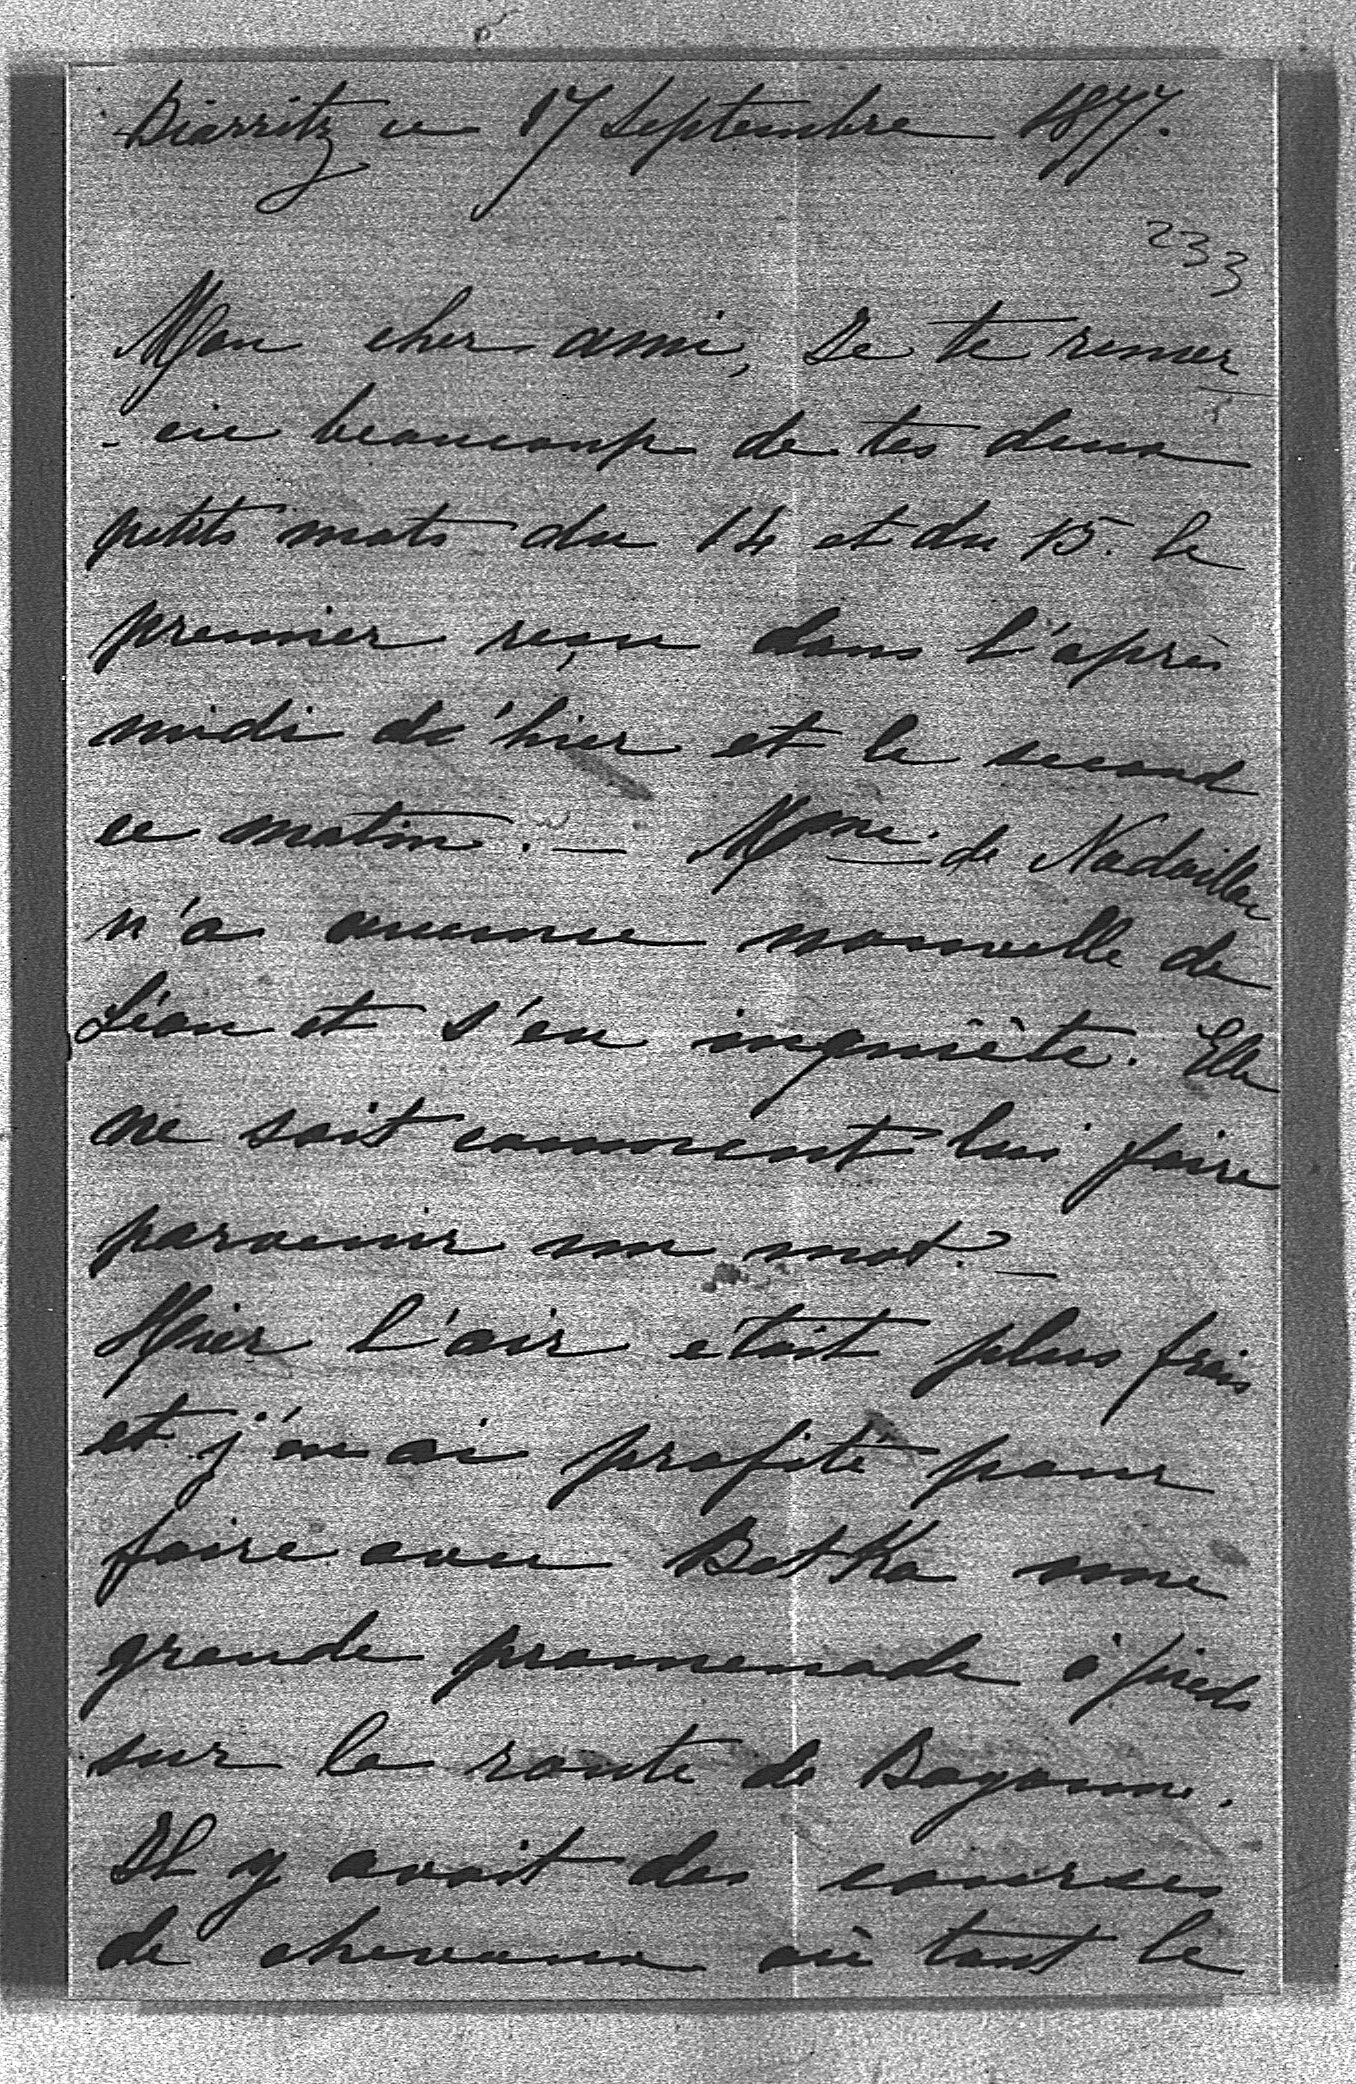 Biarritz ce 17 Septembre 1877.
233
Mon cher ami, Je te remer
-cie beaucoup de tes deux
petits mots du 14 et du 15. le
premier reçu dans l'après
midi de'hier et le second
ce matin. — Mme de Nadaillac
n'a aucune nouvelle de
Léon et s'en inquiète. Elle
ne sait comment lui faire
parvenir un mot. —
Hier l'air etait plus frais
et j'en ai profité pour
faire avec Betka une
grande promenade à pieds
sur la route de Bayonne.
Il y avait des courses
de chevaux où tout le